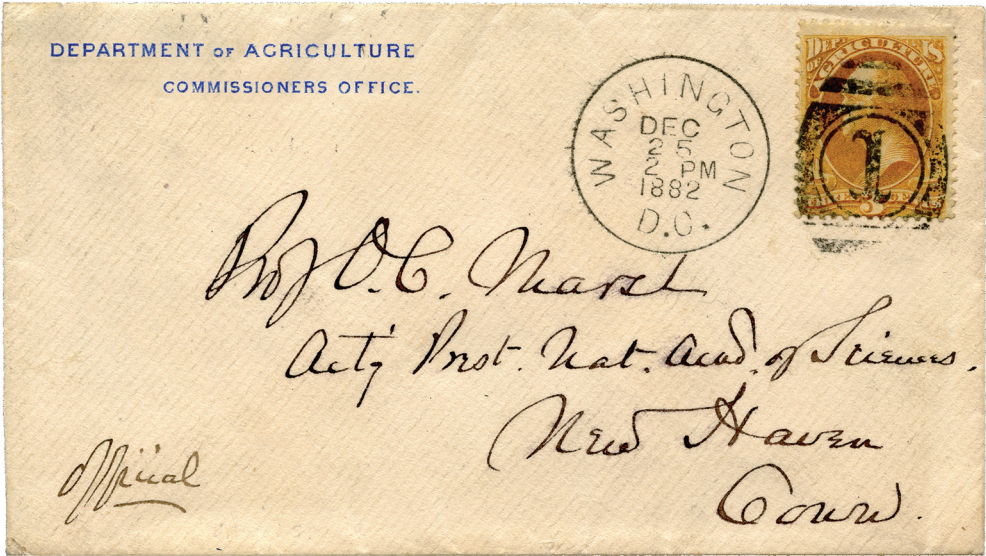 DEPARTMENT OF AGRICULTURE
COMMISSIONERS OFFICE.
WASHINGTON
DEC
25
2 PM
1882
D.C.
1
3
Prof O.C. Marsh
Act'g Prest. Nat. Acad. of Sciences.
New Haven
Conn.
Official